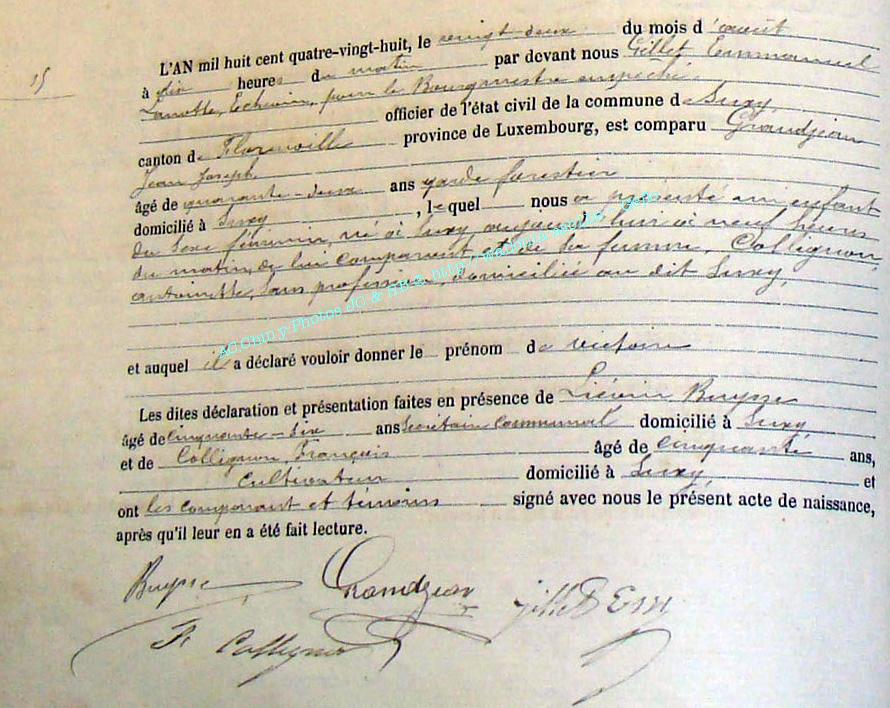 15
L'AN mil huit cent quatre-vingt-huit, le vingt-deux du mois d'août
à dix heures du matin par devant nous Gillet Emmanuel
Lamotte, Echevin, pour le Bourgmestre empêché
officier de l'état civil de la commune de Suxy,
canton de Florenville province de Luxembourg, est comparu Grandjean
Jean Joseph
âgé de quarante-deux ans garde forestier
domicilié à Suxy, lequel nous a présenté un enfant
du sexe féminin, né à Suxy aujourd'hui à neuf heures
du matin, de lui comparant et de sa femme, Collignon,
antoinette, sans profession, domiciliée au dit Suxy,
et auquel il a déclaré vouloir donner le prénom de victoire
Les dites déclaration et présentation faites en présence de Liévin Buysse
âgé de cinquante-six ans Secrétaire Communal domicilié à Suxy
et de Collignon, François âgé de cinquante ans,
Cultivateur domicilié à Suxy, et
ont les comparant et témoins signé avec nous le présent acte de naissance,
après qu'il leur en a été fait lecture.
Buysse Grandjean Gillet Em
F. Collignon